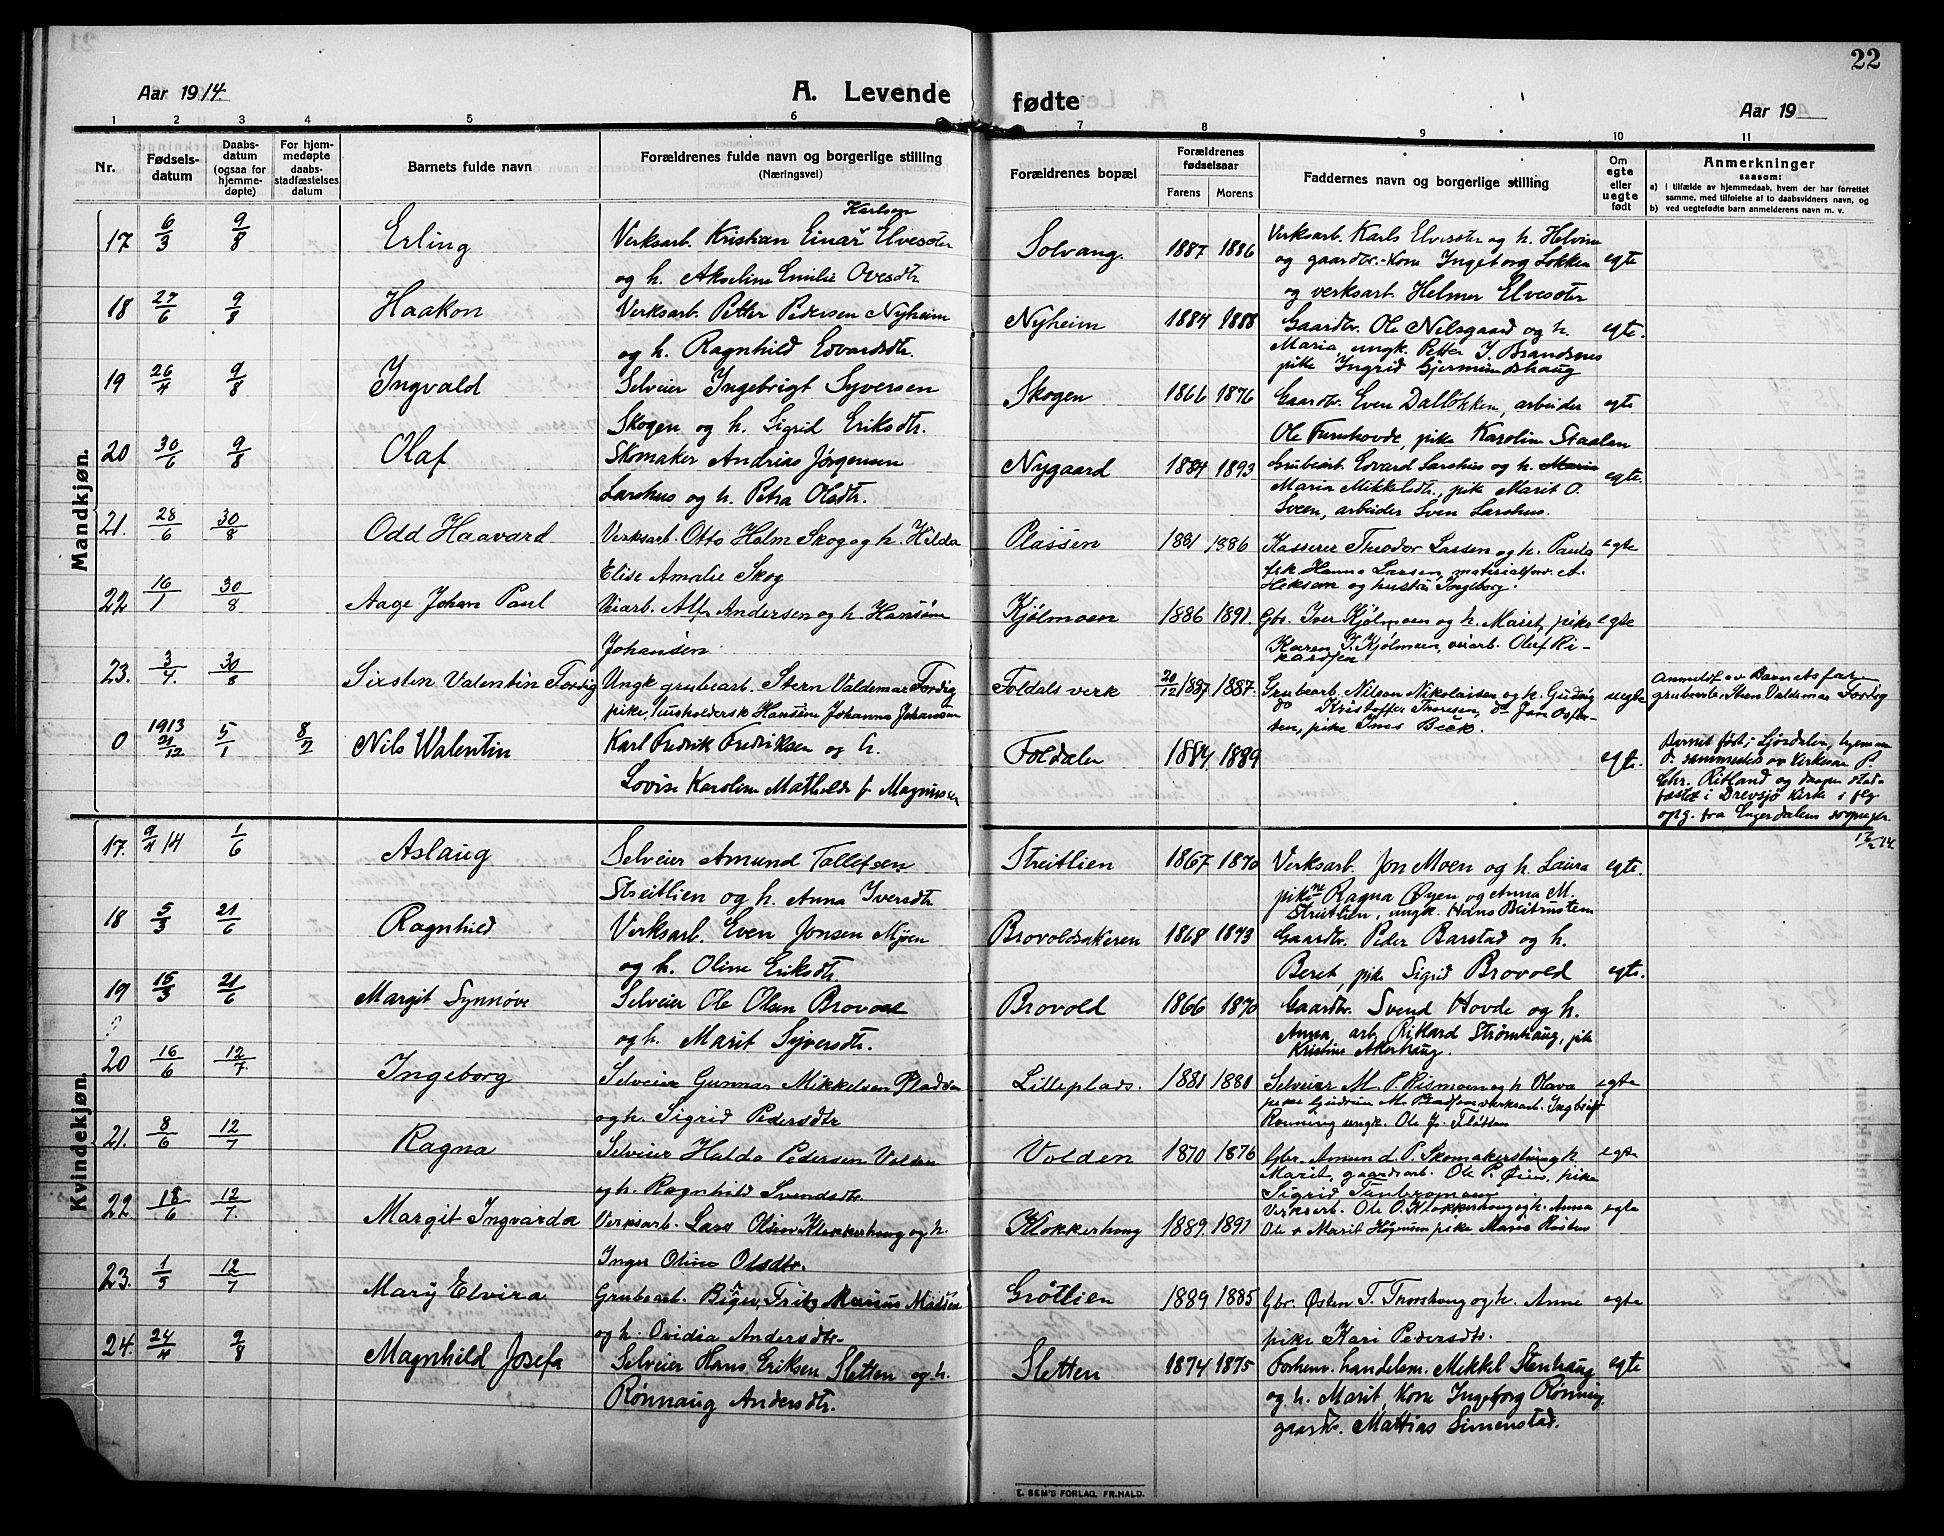 22
Aar 1914.
A. Levende fødte
Aar 19
1 2 3 4 5 6 7 8 9 10 11
Nr.
Fødsels-
datum
Daabs-
datum
(ogsaa for
hjemme-
døpte)
For hjem-
medøpte
daabs-
stadfæstelses
datum
Barnets fulde navn
Forældrenes fulde navn og borgerlige stilling
(Næringsvei)
Forældrenes bopæl
Forældrenes
fødselsaar
Farens Morens
Faddernes navn og borgerlige stilling
Om
egte
eller
uegte
født
Anmerkninger
saasom:
a) i tilfælde av hjemmedaab, hvem der har forrettet
samme, med tilføielse af to daabsvidners navn, og
b) ved uegtefødte barn anmelderens navn m. v.
Mandkjøn.
17 6/3 9/8 Erling Verksarb. Kristian Einar Karlsen Elvesæter Solvang. 1887 1886 Verksarb. Karls Elvesæter og h. Helvine egte
og h. Akseline Emilie Ovesdtr. og gaardbr.-kone Ingeborg Løkken
og verksarb. Helmer Elvesæter
18 27/6 9/8 Haakon Verksarb. Petter Pedersen Nyheim Nyheim 1884 1888 Gaardbr. Ole Nilsgaard og h. egte.
og h. Ragnhild Edvardsdtr. Maria, ungk. Petter J. Brandsnes
pike Ingrid Gjermundshaug
19 26/4 9/8 Ingvald Selveier Ingebrigt Syversen Skogen 1866 1876 Gaardbr. Even Dalløkken, arbeider egte
Skogen og h. Sigrid Eriksdtr. Ole Furuhovde, pike Karoline Staalen
20 30/6 9/8 Olaf Skomaker Andrias Jørgensen Nygaard 1884 1893 Grubearb. Edvard Larshus og h. Maria egte.
Larshus og h. Petra Olsdtr. Maria Mikkelsdtr., pike Marit O.
Sveen, arbeider Sven Larshus.
21. 28/6 30/8 Odd Haavard Verksarb. Otto Holm Skog og h. Hilda Plassen 1881 1886 Kasserer Theodor Lassen og h. Paula egte
Elise Amalie Skog frk. Hanna Larsen, materialforv. A.
og hustru Ingeborg.
22 16/1 30/8 Aage Johan Paul Veiarb. Alf Andersen og h. Hansine Kjølmoen 1886 1891. Gbr. Iver Kjølmoen og h. Marit, pike egte
Johansen Karen I. Kjølmoen, veiarb. Oluf Ri-
kardsen
23. 3/4. 30/8 Sixsten Valentin Fordig Ungk. grubearb. Stern Valdemar Fordig Foldals verk 20/12 1887 1887. Grubearb. Nilson Nikolaisen og h. Gudvig uegte Anmeldt av Barnets far
pike, husholderske Hansine Johanna Johansen do Kristoffer Thoresen, do Jon grubearb. Sten Valdemar Fordig
pike Inés Beck.
0 1913 21/12 5/1 8/2 Nils Walentin Karl Fredrik Fredriksen og h. Foldalen 1884. 1889 egte. Barnet født i Sjørdalen, hjemme
Lovise Karoline Mathilde f. Magnussen d. sammesteds av kirkesan. P.
Chr. Ritland og daapen stad-
fæstet i Drevsjø kirke i flg.
opg. fra Engerdalens sogneprest
12/2 14.
Kvindekjøn.
17. 9/4 14 1/6 Aslaug Selveier Amund Tollefsen Streitlien 1867 1870 Verksarb. Jon Moen og h. Laura egte.
Streitlien og h. Anna Iversdtr pikene Ragna Øyen og Anna M.
Streitlien, ungk. Hans Blitrusten
18 5/3 21/6 Ragnhild Verksarb. Even Jonsen Mjøen Brovoldsakeren 1868 1873 Gaardbr. Peder Barstad og h.
og h. Oline Eriksdtr Beret, pike Sigrid Brovold egte.
19 15/3 21/6 Margit Synnøve Selveier Ole Olsen Brovold Brovold 1866 1870 Gaardbr. Svend Hovde og h.
og h. Marit Syversdtr. Anna, arb. Rikard Strømhaug, pike
Kristine Akerhaug.
20 16/6 12/7. Ingeborg Selveier Gunnar Mikkelsen Pladsen Lilleplads. 1881 1881 Selveier M. P. Rismoen og h. Olava egte
og h. Sigrid Pedersdtr pike Gudrun M. Pladsen verksarb. Ingbrigt
Rønning ungk. Ole J. Flåtten
21. 8/6 12/7 Ragna Selveier Haldo Pedersen Volden Volden 1870 1876 Gbr. Amund P. Skomakerstuen og h. egte
og h. Ragnhild Svendsdtr. Marit, gaardsarb. Ole P. Øien, pike
Sigrid
22. 18/6 12/7. Margit Ingvarda Verksarb. Lars Olsen Klokkerhaug og h. Klokkerhaug 1889. 1891 Verksarb. Ole O. Klokkerhaug og h. Anna egte
Inger Oline Olsdtr. Ole + Marit Høgmoen pike Marie
23. 1/5 12/7 Mary Elvira Grubearb. Birger Fritz Marius Madsen Grøtlien 1889 1885 Gbr. Østen T. Thorshaug og h. Anne egte
og h. Ovidia Andersdtr. pike Kari Pedersdtr.
24. 24/4 9/8 Magnhild Josefa Selveier Hans Eriksen Sletten og h. Sletten 1874 1875 Forhenv. handelsm. Mikkel Stenhaug egte
Rønnaug Andersdtr. og h. Marit, kone Ingeborg Rønning,
gaardbr. Mattias Simenstad.
E. SEM'S FORLAG, FR.HALD.